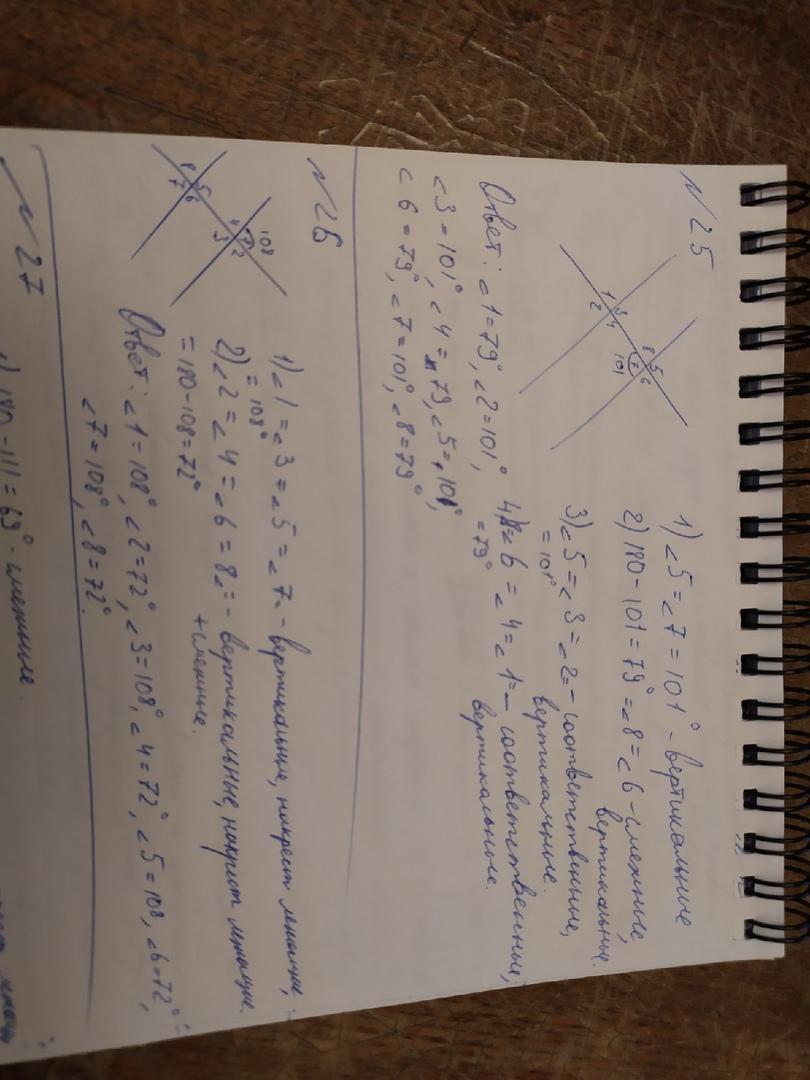 №25
1 3
2 4
8 5
7 6
101
1) ∠5 = ∠7 = 101° - вертикальные
2) 180 - 101 = 79° = ∠8 = ∠6 - смежные,
вертикальные.
3) ∠5 = ∠3 = ∠2 = - соответственные,
= 101° вертикальные.
4) ∠6 = ∠4 = ∠1 = - соответственные,
= 79° вертикальные.
Ответ: ∠1 = 79°, ∠2 = 101°,
∠3 = 101°, ∠4 = 79, ∠5 = 101°,
∠6 = 79°, ∠7 = 101°, ∠8 = 79°
№26
108
1 2
4 3
8 5
7 6
1) ∠1 = ∠3 = ∠5 = ∠7 = - вертикальные, накрест лежащие,
= 108°
2) ∠2 = ∠4 = ∠6 = 8 = - вертикальные, накрест лежащие.
= 180 - 108 = 72° + смежные.
Ответ: ∠1 = 108°, ∠2 = 72°, ∠3 = 108°, ∠4 = 72°, ∠5 = 108, ∠6 = 72°,
∠7 = 108°, ∠8 = 72°.
№27
1) 180 - 111 = 69° - смежные.